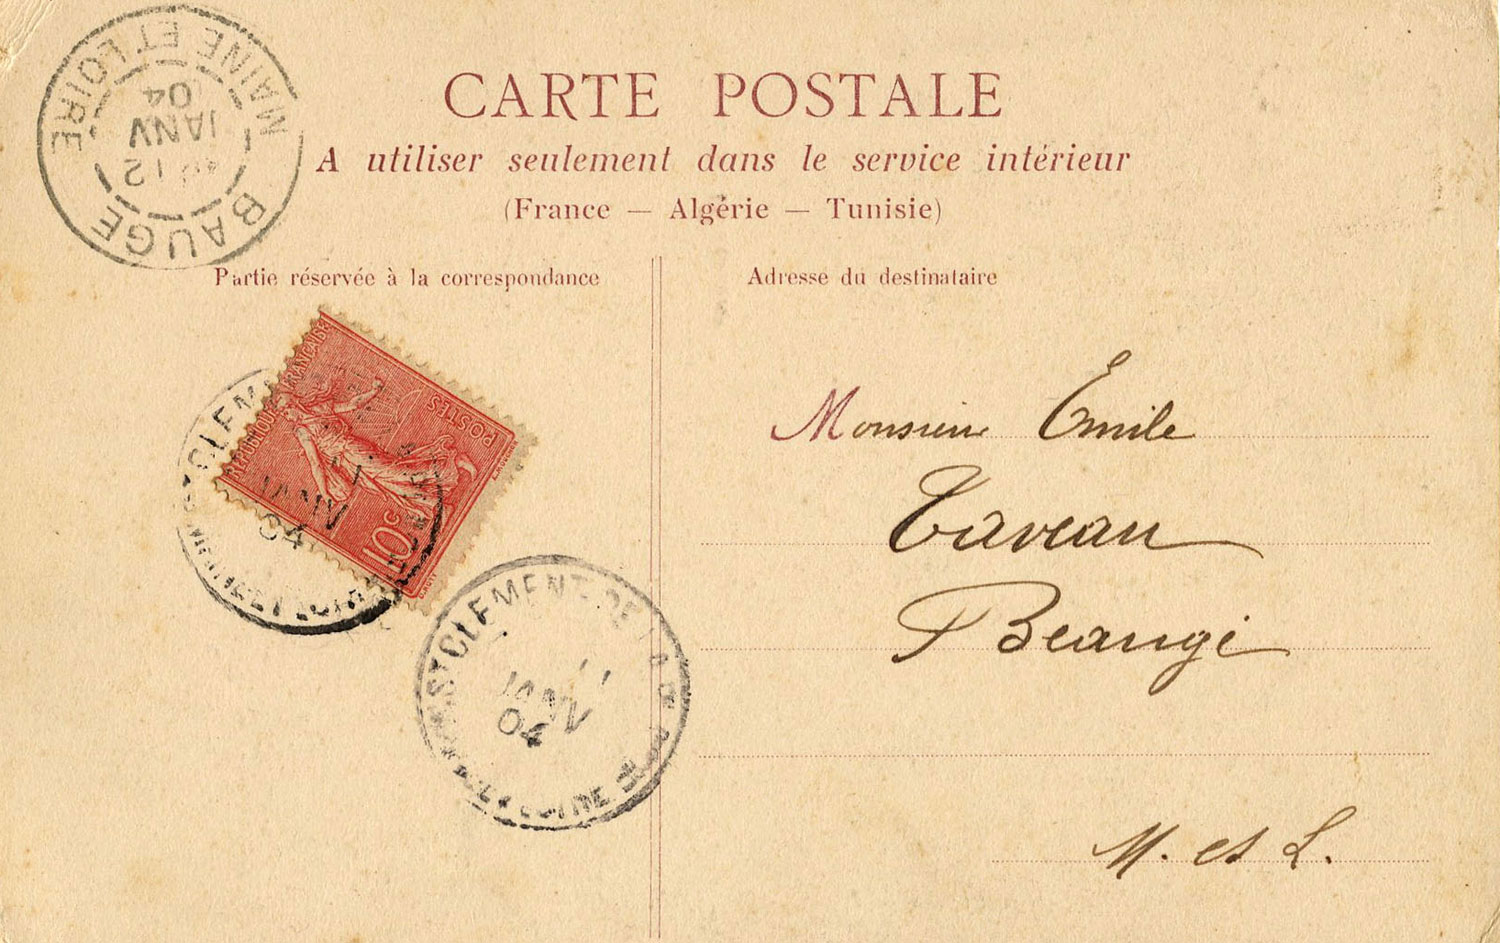 MAINE ET LOIRE
12
JANV
04
BAUGE
CARTE POSTALE
A utiliser seulement dans le service intérieur
(France — Algérie — Tunisie)
Partie réservée à la correspondance
Adresse du destinataire
RÉPUBLIQUE FRANÇAISE
POSTES
10c
ST CLEM
11
JANV
04
ST CLEMENT-DE
11
JANV
04
Monsieur Emile
Taveau
Beaugé
M. et L.